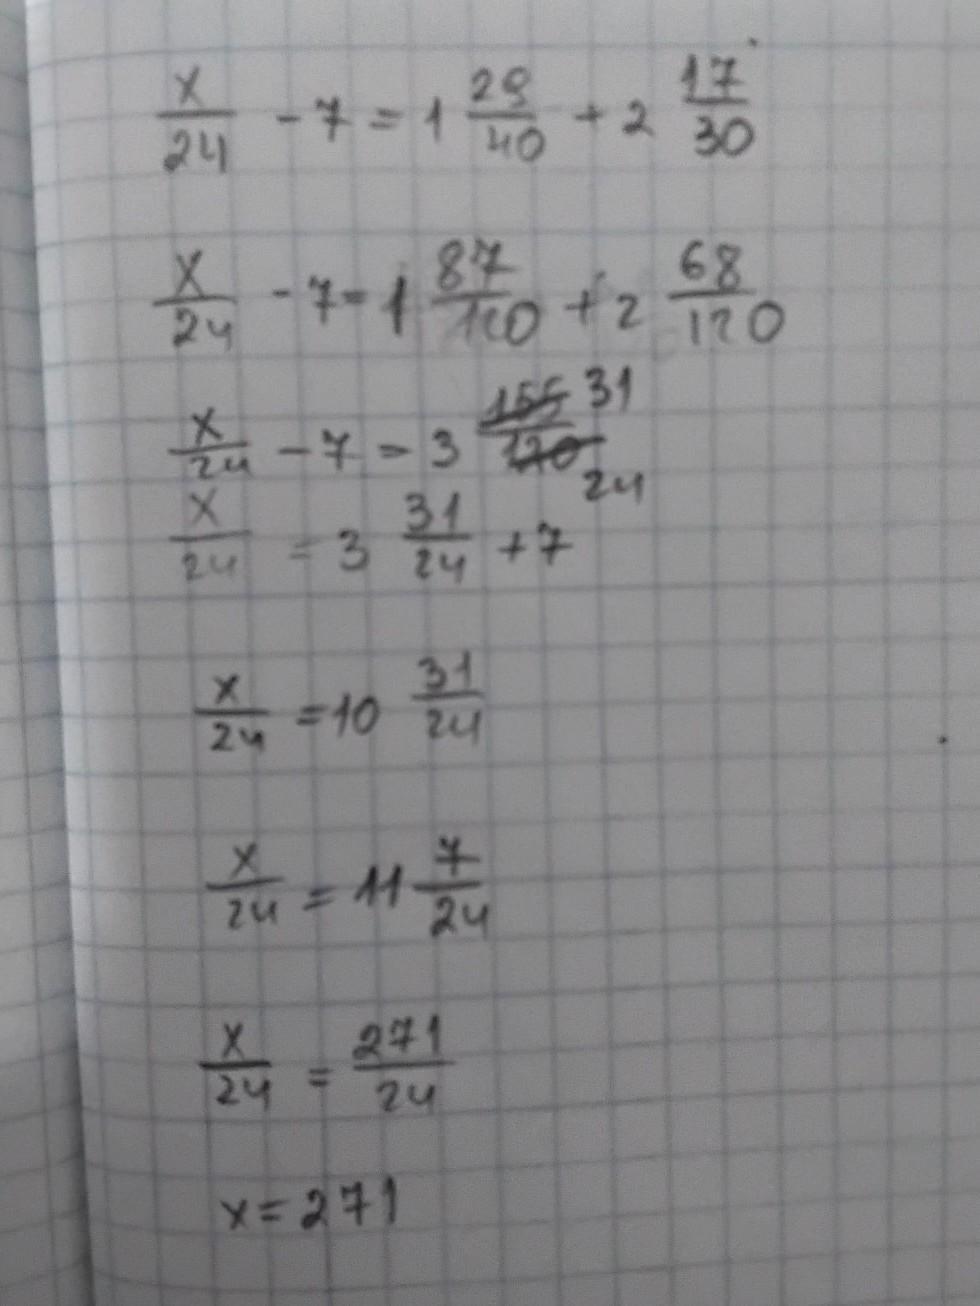 x/24 - 7 = 1 29/40 + 2 17/30
x/24 - 7 = 1 87/120 + 2 68/120
x/24 - 7 = 3 155/120 31/24
x/24 = 3 31/24 + 7
x/24 = 10 31/24
x/24 = 11 7/24
x/24 = 271/24
x = 271